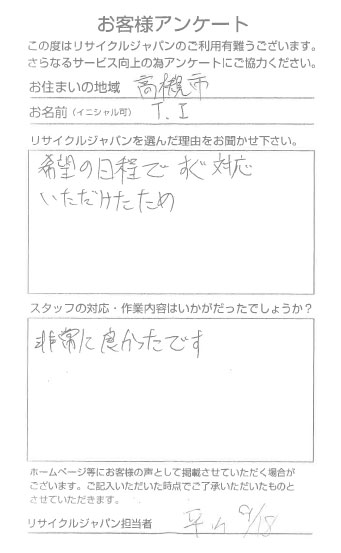 お客様アンケート
この度はリサイクルジャパンのご利用有難うございます。
さらなるサービス向上の為アンケートにご協力ください。
お住まいの地域 高槻市
お名前（イニシャル可） T. I
リサイクルジャパンを選んだ理由をお聞かせ下さい。
希望の日程ですぐ対応
いただけたため
スタッフの対応・作業内容はいかがだったでしょうか？
非常に良かったです
ホームページ等にお客様の声として掲載させていただく場合が
ございます。ご記入いただいた時点でご了承いただいたものと
させていただきます。
リサイクルジャパン担当者 平山 9/18